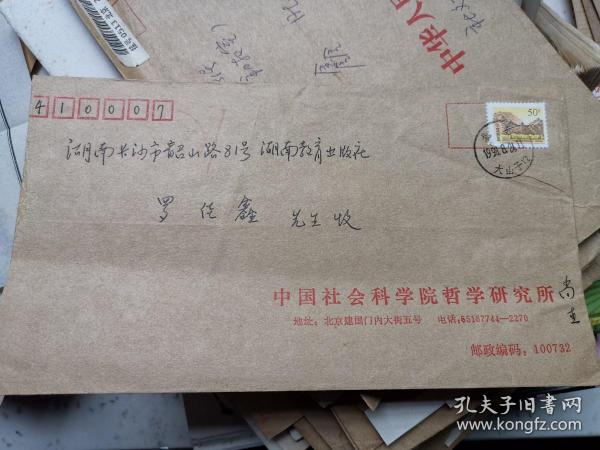 410007
湖南长沙市韶山路81号 湖南教育出版社
罗 先生收
中国社会科学院哲学研究所 尚
地址：北京建国门内大街五号 电话：65137744—2270
邮政编码：100732
50
中华人民
孔夫子旧书网
www.kongfz.com